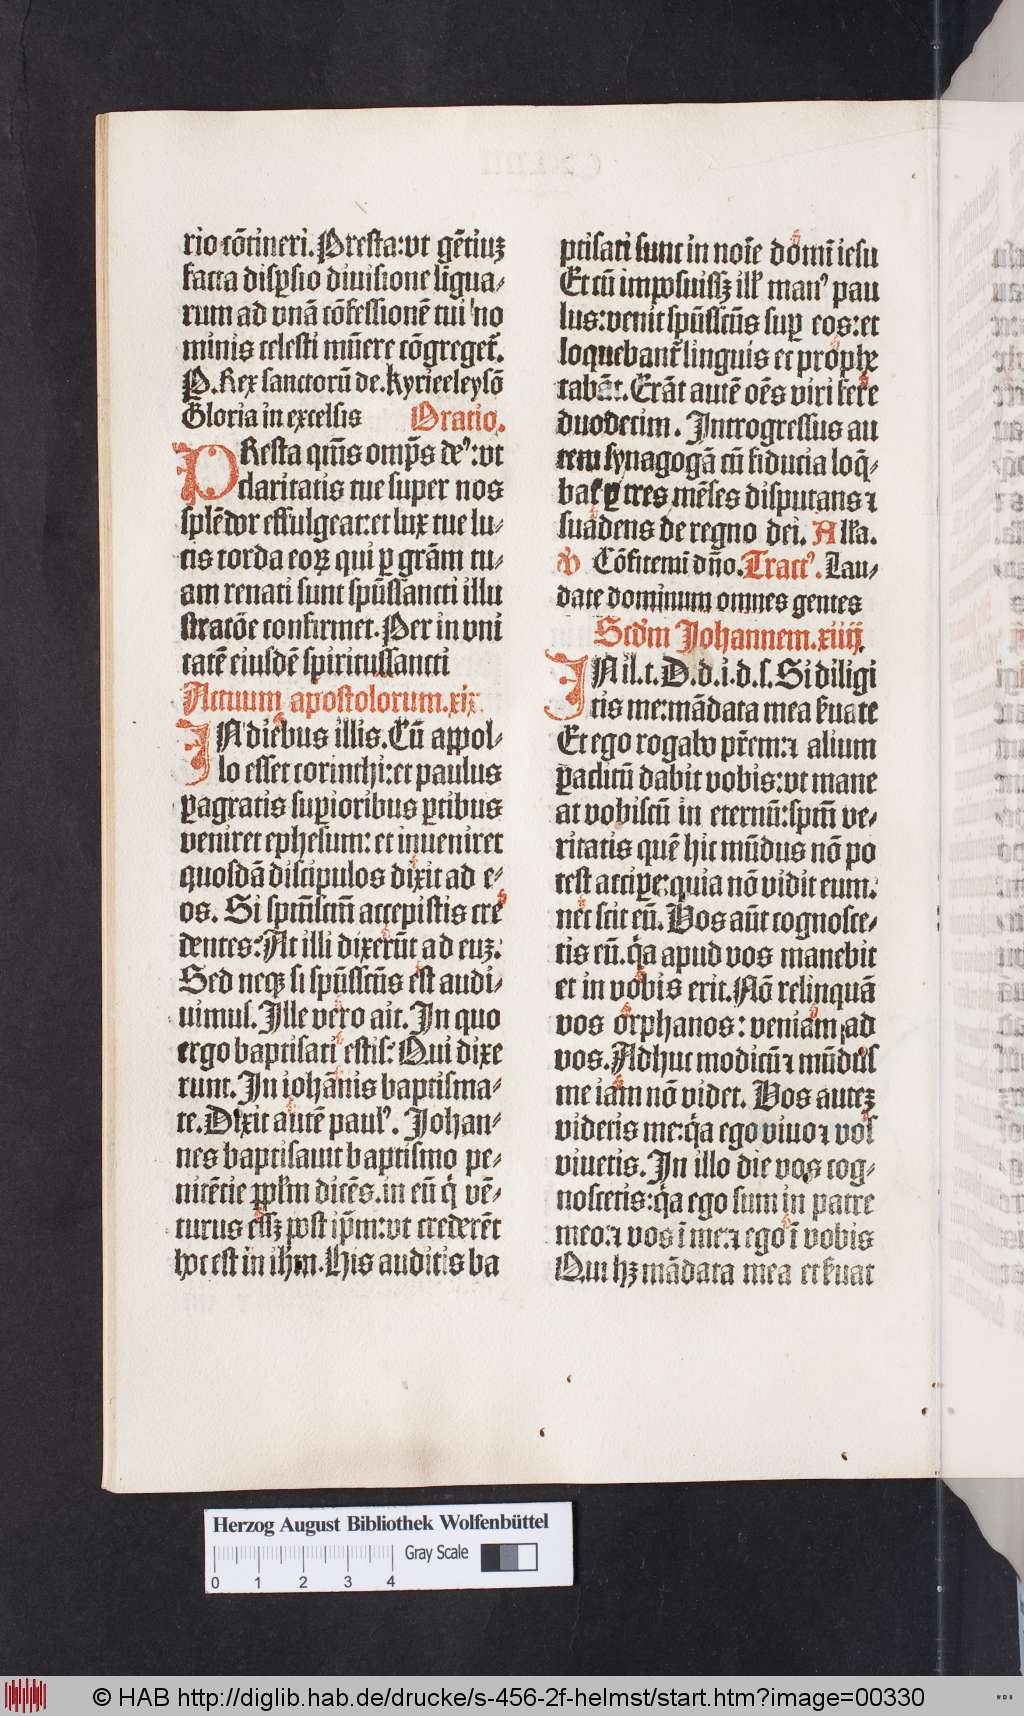 rio cõtineri. Presta: vt gẽtiuʒ
facta disp̱sio diuisione lĩgua⸗
rum ad vnã cõfessionẽ tui no
minis celesti mũere cõgreget̃.
P. Rex sanctorũ de. kyrieeleysõ
Gloria in excelsis Oratio.
PResta qm̃s omp̃s deꝰ: vt
claritatis tue super nos
splẽdor effulgeat: et lux tue lu⸗
cis corda eoꝝ qui ꝑ gr̃am tu⸗
am renati sunt spũssancti illu
stratõe confirmet. Per in vni
tatẽ eiusdẽ spiritussancti
Actuum apostolorum. xix.
IN diebus illis. Cũ appol⸗
lo esset corinthi: et paulus
ꝑagratis suꝑioribus ꝑtibus
veniret ephesum: et inueniret
quosdã discipulos dixit ad e⸗
os. Si spm̃sctm̃ accepistis cre
dentes? At illi dixerũt ad euʒ.
Sed neqꝫ si spũssctũs est audi⸗
uimus. Ille vero ait. In quo
ergo baptisati estis? Qui dixe
runt. In johãnis baptisma⸗
te. Dixit autẽ paulꝰ. Johan⸗
nes baptisauit baptismo pe⸗
nitẽtie pp̃lm dicẽs. in eũ q̃ vẽ⸗
turus eẽʒ post ip̃m: vt crederẽt
hoc est in ihm̃. His auditis ba
ptisati sunt in noĩe dom̃i iesu
Et cũ imposuissʒ ill̃ manꝰ pau
lus: venit spũssctũs suꝑ eos: et
loquebant̃ linguis et prophe
tabãt. Erãt autẽ oẽs viri fere
duodecim. Introgressus au
tem synagogã cũ fiducia loq̃⸗
bat̃ ꝑ tres mẽses disputans ⁊
suadens de regno dei. Alľa.
V Cõfitemi dño. Tractꝰ. Lau⸗
date dominum omnes gentes
Scd̃m Johannem. xiiij.
IN il. t. D. d. i. d. s. Si diligi
tis me: mãdata mea ẜuate
Et ego rogabo pr̃em: ⁊ alium
ꝑaclitũ dabit vobis: vt mane
at vobiscũ in eternũ: spm̃ ve⸗
ritatis quẽ hic mũdus nõ po
test acciꝑe: quia nõ vidit eum.
nec scit eũ. Vos aũt cognosce⸗
tis eũ. q̃a apud vos manebit
et in vobis erit. Nõ relinquã
vos orphanos: veniam ad
vos. Adhuc modicũ ⁊ mũdus
me iam nõ videt. Vos auteʒ
videtis me: q̃a ego viuo ⁊ vos
viuetis. In illo die vos cog⸗
noscetis: q̃a ego sum in patre
meo: ⁊ vos ĩ me: ⁊ ego ĩ vobis
Qui hʒ mãdata mea et ẜuat
Herzog August Bibliothek Wolfenbüttel
Gray Scale
0 1 2 3 4
© HAB http://diglib.hab.de/drucke/s-456-2f-helmst/start.htm?image=00330